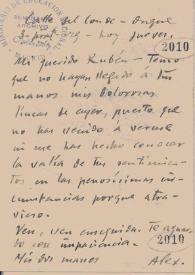 MINISTERIO DE EDUCACIÓN
ARCHIVO
Calle del Conde-Duque
hoy jueves.
2010
Mi querido Rubén - Temo
que no hayan llegado á tus
manos mis dolorosas
líneas de ayer, puesto que
no has venido á verme
ni me has hecho conocer
la valía de tus sentimien-
tos en las penosísimas cir-
cunstancias porque atra-
vieso.
Ven, ven enseguida. Te aguar-
do con impaciencia.
Mis dos manos
2010
Alex.